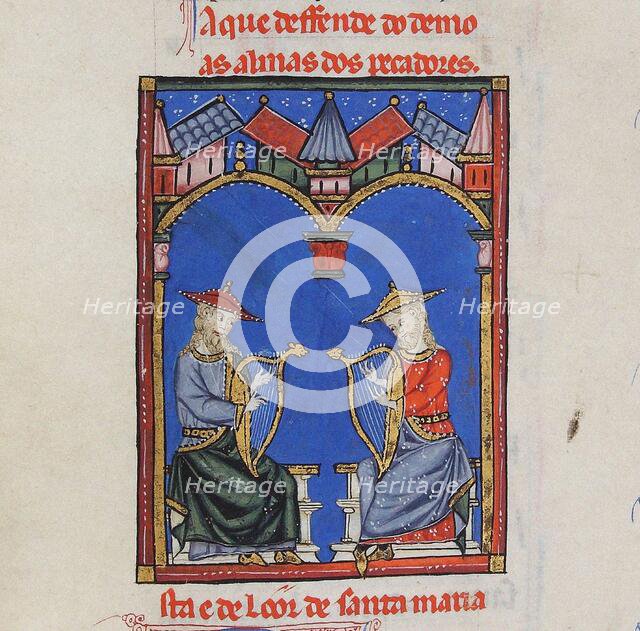 A que deffende do demo
as almas dos pecadores.
Heritage Heritage
©
Heritage Heritage
Heritage Heritage
sta e de Loor de santa maria